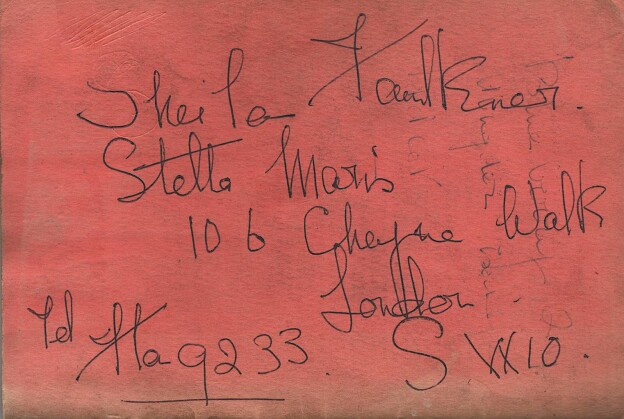 Sheila Faulkner.
Stella Maris
106 Cheyne Walk
London
S W10.
Tel Fla 9233.